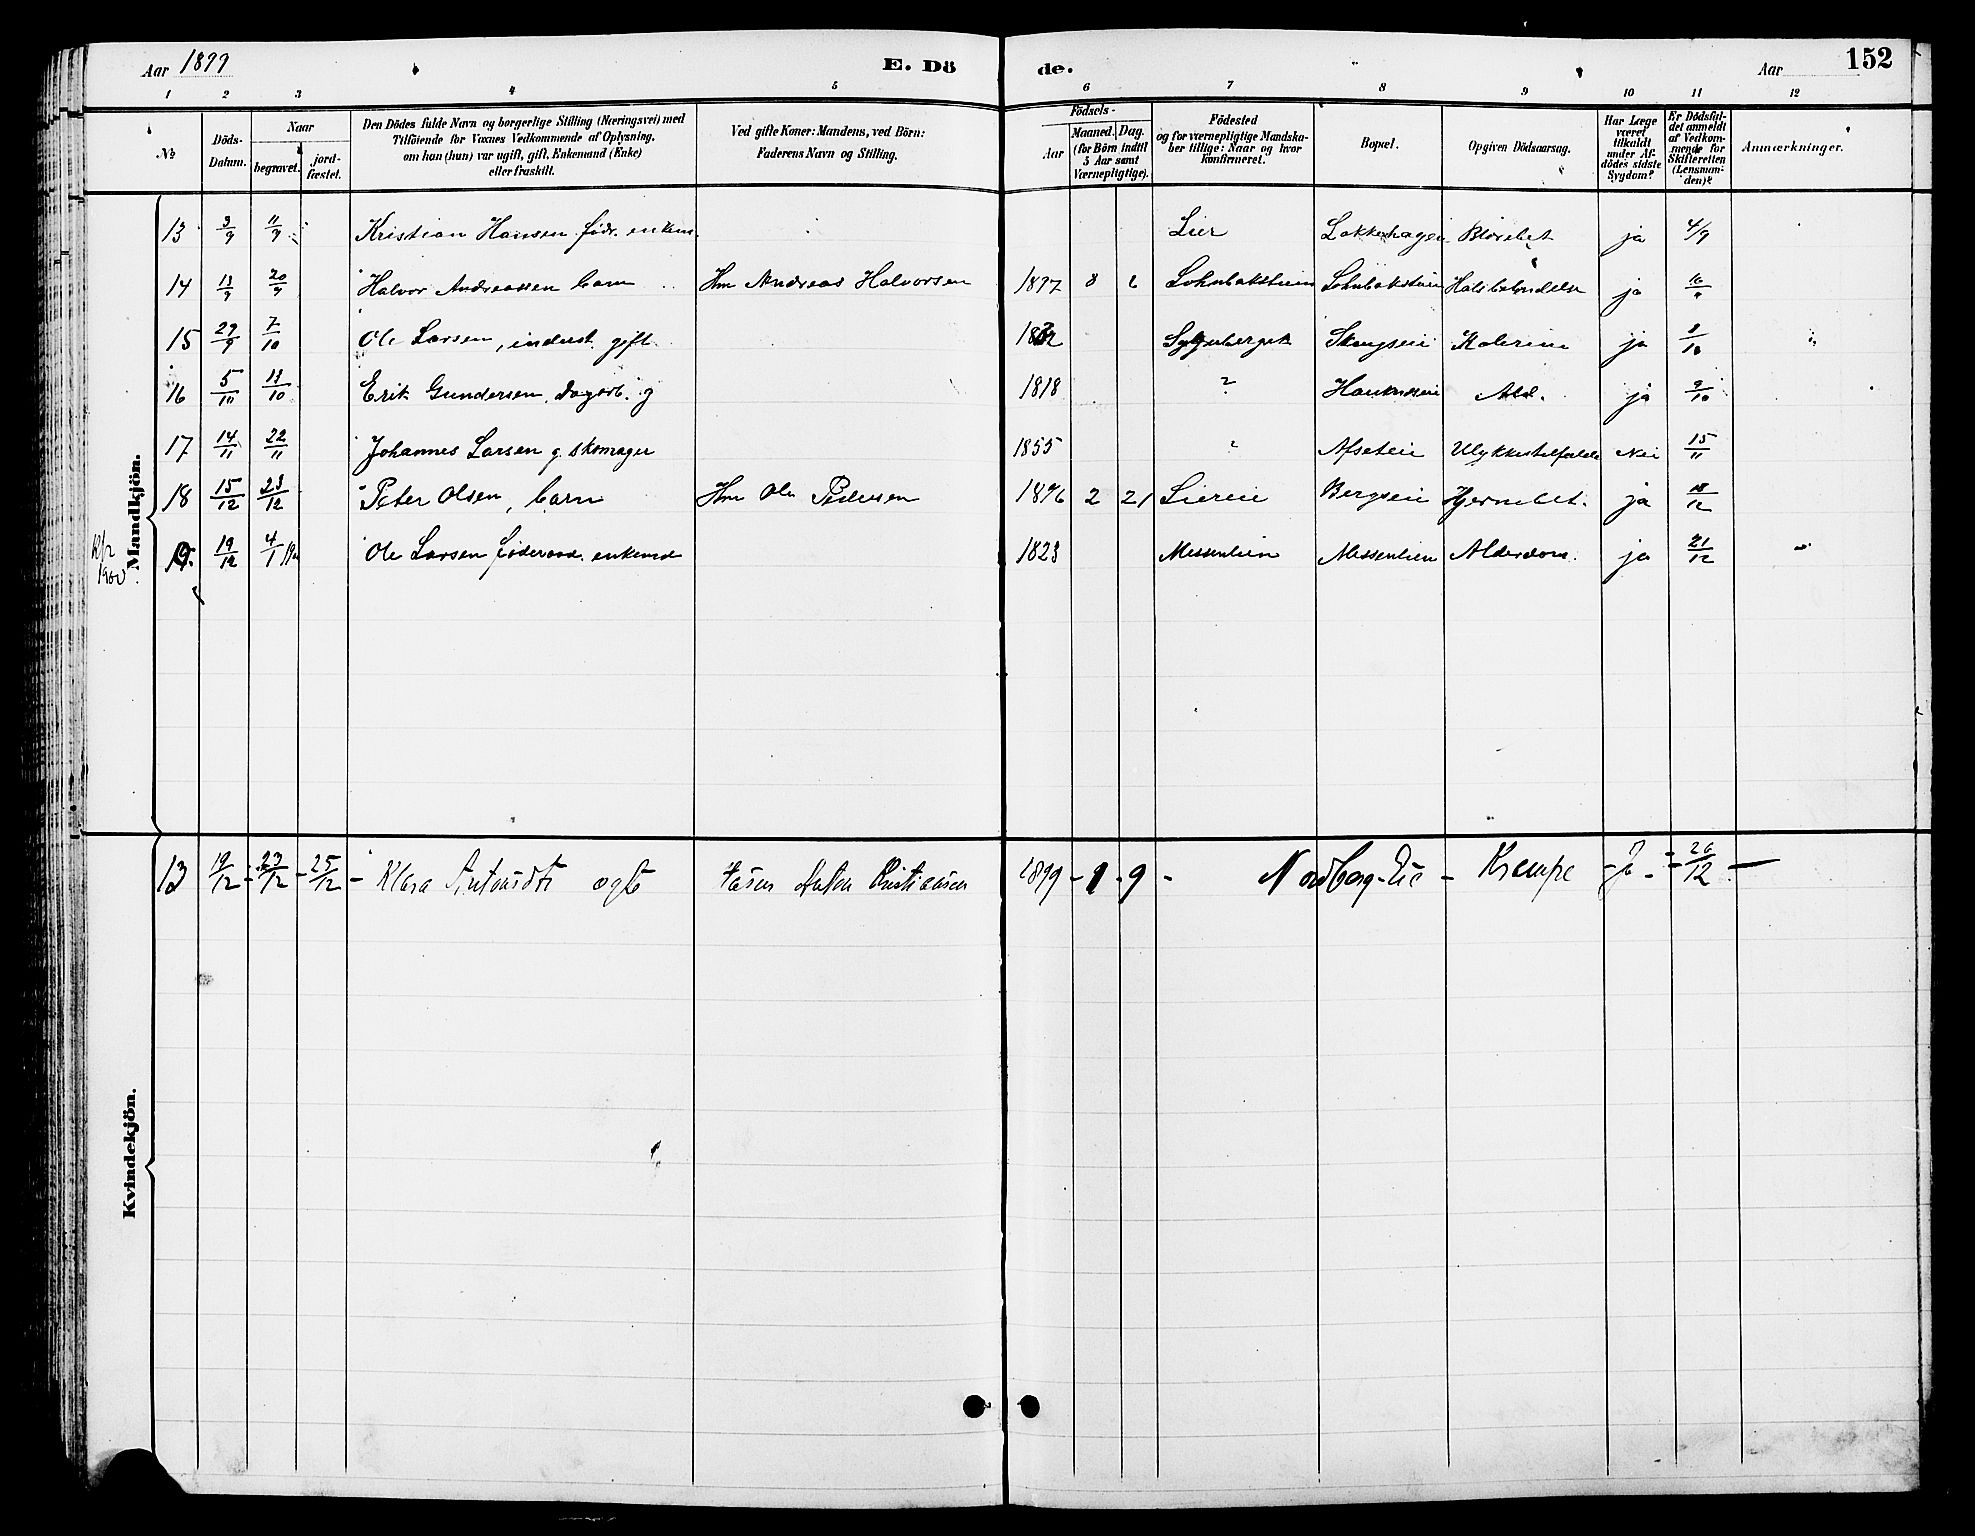 Aar 1899 E. Dö de. Aar 152
1 2 3 4 5 6 7 8 9 10 11 12
№
Döds-Datum.
Naar
begravet.
jord-fæstet.
Den Dödes fulde Navn og borgerlige Stilling (Næringsvei) med
Tilföiende for Voxnes Vedkommende af Oplysning,
om han (hun) var ugift, gift, Enkemand (Enke)
eller fraskilt.
Ved gifte Koner: Mandens, ved Börn:
Faderens Navn og Stilling.
Födsels-
Aar
Maaned. Dag.
(for Börn indtil
5 Aar samt
Værnepligtige).
Födested
og for værnepligtige Mandska-
ber tillige: Naar og hvor
konfirmeret.
Bopæl.
Opgiven Dödsaarsag.
Har Læge
været
tilkaldt
under Af-
dödes sidste
Sygdom?
Er Dödsfal-
det anmeldt
af Vedkom-
mende for
Skifteretten
(Lensman-
den)?
Anmærkninger.
Mandkjön.
13 3/9 11/9 Kristian Hansen födr. enkem. Lier Lokkehagen ja 4/9
14 13/9 20/9 Halvor Andreassen barn Hm Andreas Halvorsen 1897 8 6 ja
15 29/9 7/10 Ole Larsen, inderst. gift. ja
16 5/11 13/10 Erik Gundersen, dagarb. g 1818 " Ald. ja 9/10
17 14/11 22/11 Johannes Larsen g. skomager 1855 " Afseteie Ulykkestilfælde Nei 15/11
18 15/12 23/12 Peter Olsen, barn Hm Ole Pedersen 1896 2 21 Liereie Bergseie Hjernebet. ja 18/12
19. 19/12 4/1 Ole Larsen föderaad. enkemd 1823 Messenlien Messenlien Alderdom. ja 21/12
1900
Kvindekjön.
13 19/12 - 23/12 - 25/12 - Klara Antonsdtr ægte Anton Kristiansen 1899 - 1 - 9 - Nordberg-Eie - Krampe - Ja - 26/12 -